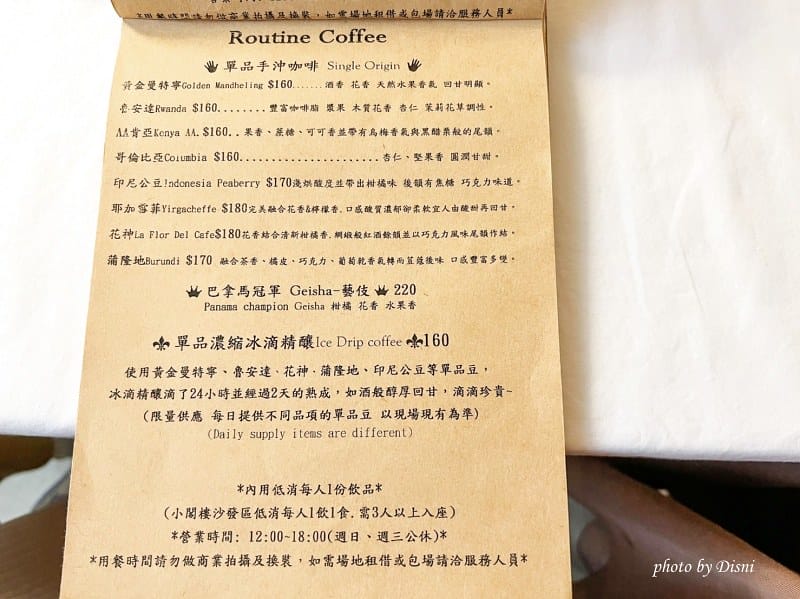 *用餐時間請勿做商業拍攝及換裝，如需場地租借或包場請洽服務人員*
Routine Coffee
單品手沖咖啡 Single Origin
黃金曼特寧Golden Mandheling $160.......酒香 花香 天然水果香氣 回甘明顯。
魯安達Rwanda $160........豐富咖啡脂 漿果 木質花香 杏仁 茉莉花草調性。
AA肯亞Kenya AA.$160..果香、蔗糖、可可香並帶有烏梅香氣與黑醋栗般的尾韻。
哥倫比亞Columbia $160......................杏仁、堅果香 圓潤甘甜。
印尼公豆Indonesia Peaberry $170淺烘酸度並帶出柑橘味 後韻有焦糖 巧克力味道。
耶加雪菲Yirgacheffe $180完美融合花香&檸檬香.口感醇質濃郁卻柔軟宜人由酸甜再回甘。
花神La Flor Del Cafe$180花香結合清新柑橘香.綢緞般紅酒餘韻並以巧克力風味尾韻作結。
蒲隆地Burundi $170 融合茶香、橘皮、巧克力、葡萄乾香氣轉而荳蔻後味 口感豐富多變。
巴拿馬冠軍 Geisha-藝伎 220
Panama champion Geisha 柑橘 花香 水果香
單品濃縮冰滴精釀Ice Drip coffee 160
使用黃金曼特寧、魯安達、花神、蒲隆地、印尼公豆等單品豆，
冰滴精釀滴了24小時並經過2天的熟成，如酒般醇厚回甘，滴滴珍貴~
(限量供應 每日提供不同品項的單品豆 以現場現有為準)
(Daily supply items are different)
*內用低消每人1份飲品*
(小閣樓沙發區低消每人1飲1食.需3人以上入座)
*營業時間: 12:00~18:00(週日、週三公休)*
*用餐時間請勿做商業拍攝及換裝，如需場地租借或包場請洽服務人員*
photo by Disni